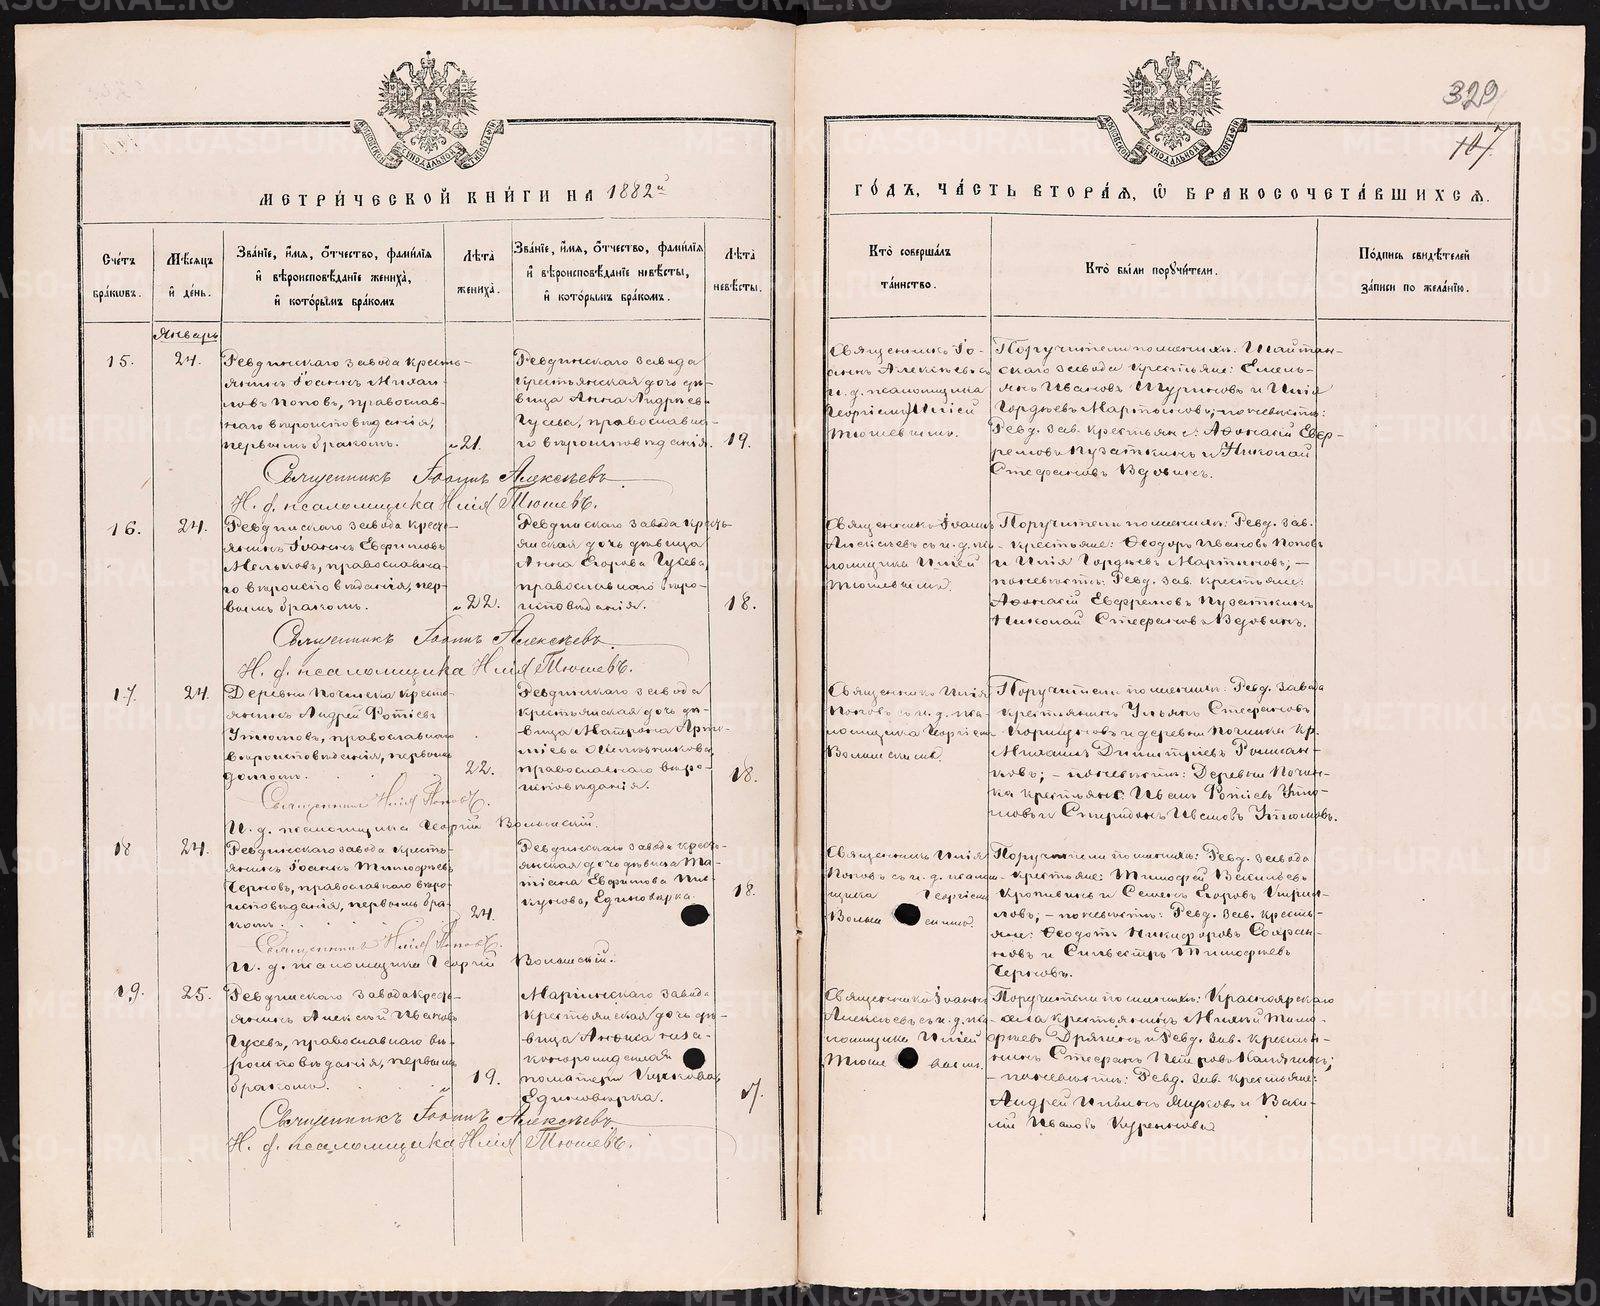 329
107
МЕТРИ́ЧЕСКОЙ КНИ́ГИ НА 1882й
ГО́ДЪ, ЧА́СТЬ ВТОРА́Я, Ѡ БРАКОСОЧЕТА́ВШИХСЯ.
Сче́тъ бра́ковъ.
Мѣ́сяцъ и҆ де́нь.
Зва́нїе, и҆́мя, ѻ҆́тчество, фами́лїя
и҆ вѣроисповѣ́данїе жениха̀,
и҆ кото́рымъ бра́комъ
Лѣ́та жениха̀.
Зва́нїе, и҆́мя, ѻ҆́тчество, фами́лїя
и҆ вѣроисповѣ́данїе невѣ́сты,
и҆ кото́рымъ бра́комъ.
Лѣ́та невѣ́сты.
Кто̀ соверша́лъ
та́инство.
Кто̀ бы́ли поручи́тели.
По́дпись свидѣ́телей
за́писи по жела́нїю.
Январь
15.
24.
Ревдинскаго завода кресть-
янинъ Іоаннъ Михаи-
ловъ Поповъ, православ-
наго вѣроисповѣданія,
первымъ бракомъ.
21.
Ревдинскаго завода
крестьянская дочь дѣ-
вица Анна Андреев-
Гусева, православна-
го вѣроисповѣданія.
19.
Священникъ Іо-
аннъ Алексѣевъ съ
и. д. псаломщика
Георгіемъ Иліей
Тюшевымъ.
Поручители по женихѣ: Шайтан-
скаго завода крестьяне: Емель-
янъ Ивановъ Шуриновъ и Илія
Гордѣевъ Мартыновъ; по невѣстѣ:
Ревд. зав. крестьяне: Аѳанасій Евф-
ремовъ Пузаткинъ и Николай
Стефановъ Вдовинъ.
Священникъ Іоаннъ Алексѣевъ
И. д. псаломщика Илія Тюшевъ.
16.
24.
Ревдинскаго завода кресть-
янинъ Іоаннъ Евфимовъ
Мельковъ, православна-
го вѣроисповѣданія, пер-
вымъ бракомъ.
22.
Ревдинскаго завода кресть-
янская дочь дѣвица
Анна Егорова Гусева
православнаго вѣро-
исповѣданія.
18.
Священникъ Іоаннъ
Алексѣевъ съ и. д. пса-
ломщика Иліей
Тюшевымъ.
Поручители по женихѣ: Ревд. зав.
крестьяне: Ѳеодоръ Ивановъ Поповъ
и Илія Гордѣевъ Мартыновъ; —
по невѣстѣ: Ревд. зав. крестьяне:
Аѳанасій Евфремовъ Пузаткинъ
Николай Стефановъ Вдовинъ.
Священникъ Іоаннъ Алексѣевъ
И. д. псаломщика Илія Тюшевъ.
17.
24.
Деревни Починка кресть-
янинъ Андрей Фотіевъ
Утюмовъ, православнаго
вѣроисповѣданія, первымъ
22.
Ревдинскаго завода
крестьянская дочь дѣ-
вица Матрона Арте-
міева
православнаго вѣро-
исповѣданія.
18.
Священникъ Илія
Поповъ съ и. д. пса-
ломщика Георгіемъ
Поручители по женихѣ: Ревд. завода
крестьянинъ Ульянъ Стефановъ
Коршуновъ и деревни Починка кр.
Михаилъ Димитріевъ Роман-
ковъ; — по невѣстѣ: Деревни Почин-
ка крестьяне: Иванъ Фотіевъ Утю-
мовъ и Спиридонъ Ивановъ Утюмовъ.
Священникъ Илія Поповъ.
И. д. псаломщика Георгій Волынскій.
18
24.
Ревдинскаго завода кресть-
янинъ Іоаннъ Тимофѣевъ
Черновъ, православнаго вѣро-
исповѣданія, первымъ бра-
комъ.
24.
Ревдинскаго завода кресть-
янская дочь дѣвица Та-
тіана Евфимова Пис-
кунова, Единовѣрка.
18.
Священникъ Илія
Поповъ съ и. д. псалом-
щика Георгіемъ
Поручители по женихѣ: Ревд. завода
крестьяне: Тимофей Васильевъ
Кропивинъ и Семенъ Егоровъ Кирил-
ловъ; — по невѣстѣ: Ревд. зав. кресть-
яне: Ѳеодотъ Никифоровъ Софро-
новъ и Сильвестръ Тимофѣевъ
Черновъ.
Священникъ Илія Поповъ.
И. д. псаломщика Георгій Волынскій.
19.
25.
Ревдинскаго завода кресть-
янинъ Алексѣй Ивановъ
Гусевъ, православнаго вѣ-
роисповѣданія, первымъ
бракомъ.
19.
Маріинскаго завода
крестьянская дочь дѣ-
вица Анна неза-
коннорожденная
по матери
Единовѣрка.
17.
Священникъ Іоаннъ
Алексѣевъ съ и. д. пса-
ломщика Иліей
Тюшевымъ.
Поручители по женихѣ: Красноярскаго
села крестьянинъ Михей Тимо-
фѣевъ Дрягинъ и Ревд. зав. крестья-
нинъ Стефанъ Петровъ
— по невѣстѣ: Ревд. зав. крестьяне:
Андрей Ильинъ и Васи-
лій Ивановъ
Священникъ Іоаннъ Алексѣевъ
И. д. псаломщика Илія Тюшевъ.